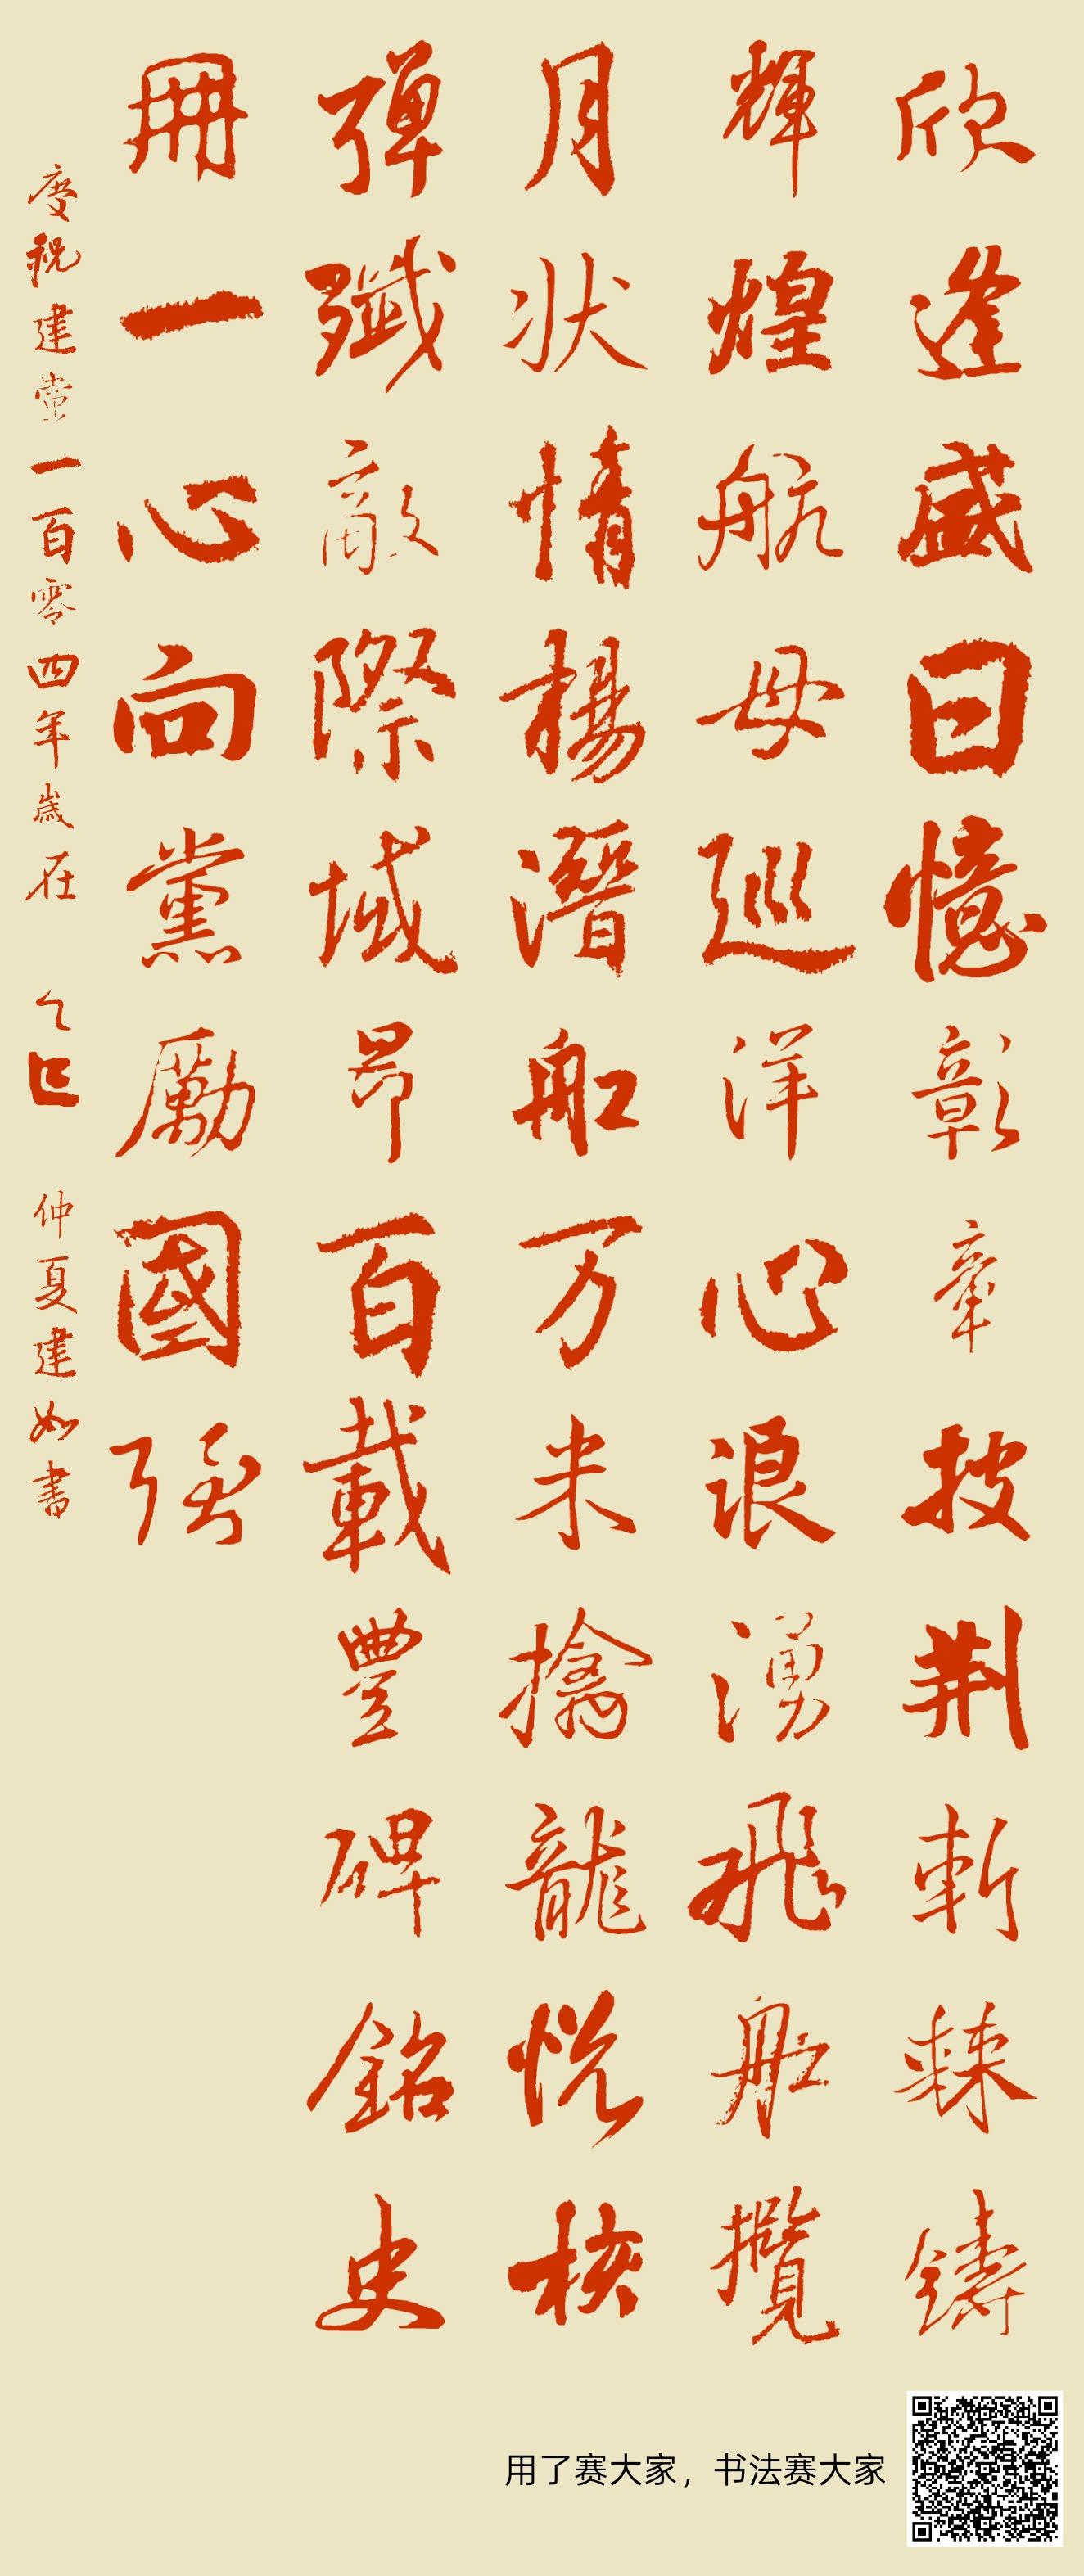 欣逢盛日憶彰章披荆斬棘鑄
輝煌航母巡洋心浪湧飛舡攬
月状情楊潛舡万米擒龍悦核
彈殲敵際域昂百載豐碑銘史
冊一心向黨勵國強
慶祝建黨一百零四年歲在 乙巳 仲夏建如書
用了赛大家，书法赛大家